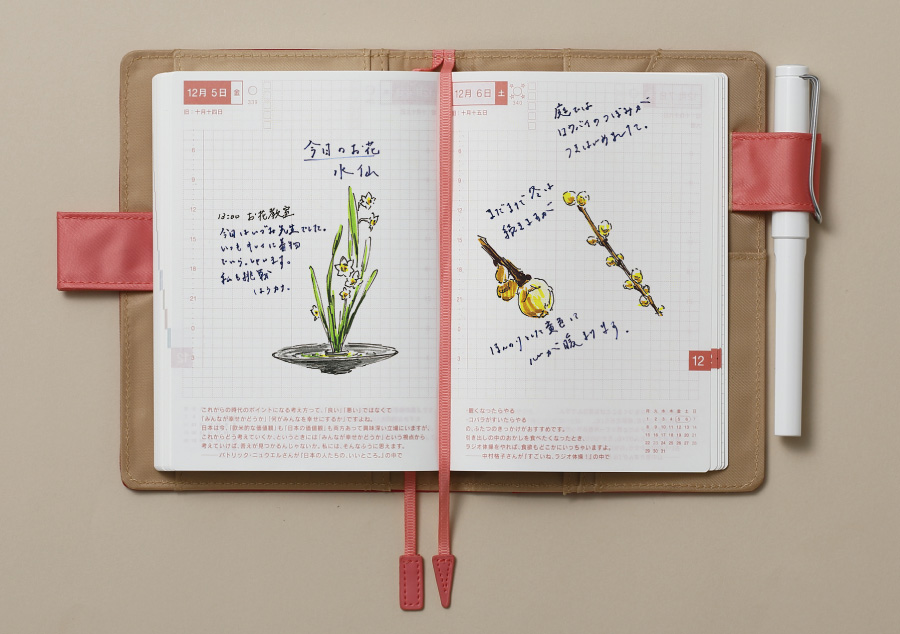 12月 5日 金
旧:十月十四日
今日のお花
水仙
13:00 お花教室
今日はいづみ先生でした。
いつもキレイに着物
私も挑戦
これからの時代のポイントになる考え方って、「良い」「悪い」ではなくて
「みんなが幸せかどうか」「何がみんなを幸せにするか」ですよね。
日本は今、「欧米的な価値観」も「日本の価値観」も両方あって興味深い立場にいますが、
これからどう考えていくか、というときには「みんなが幸せかどうか」という視点から
考えていけば、答えが見つかるんじゃないか。私には、そんなふうに思えます。
──パトリック・ニュウエルさんが『日本の人たちの、いいところ。』の中で
12月 6日 土
旧:十月十五日
庭では
ロウバイのつぼみが
つきはじめました。
まだまだ冬は
続きますが
ほんのりした黄色に
心が暖まります。
12
悪くなったらやる
コバラがすいたらやる
の、ふたつのきっかけがおすすめです。
引き出しの中のおかしを食べたくなったとき、
ラジオ体操をやれば、食欲もどこかにいっちゃいますよ。
──中村格子さんが『すごいね、ラジオ体操!』の中で
月 火 水 木 金 土 日
1 2 3 4 5 6 7
8 9 10 11 12 13 14
15 16 17 18 19 20 21
22 23 24 25 26 27 28
29 30 31